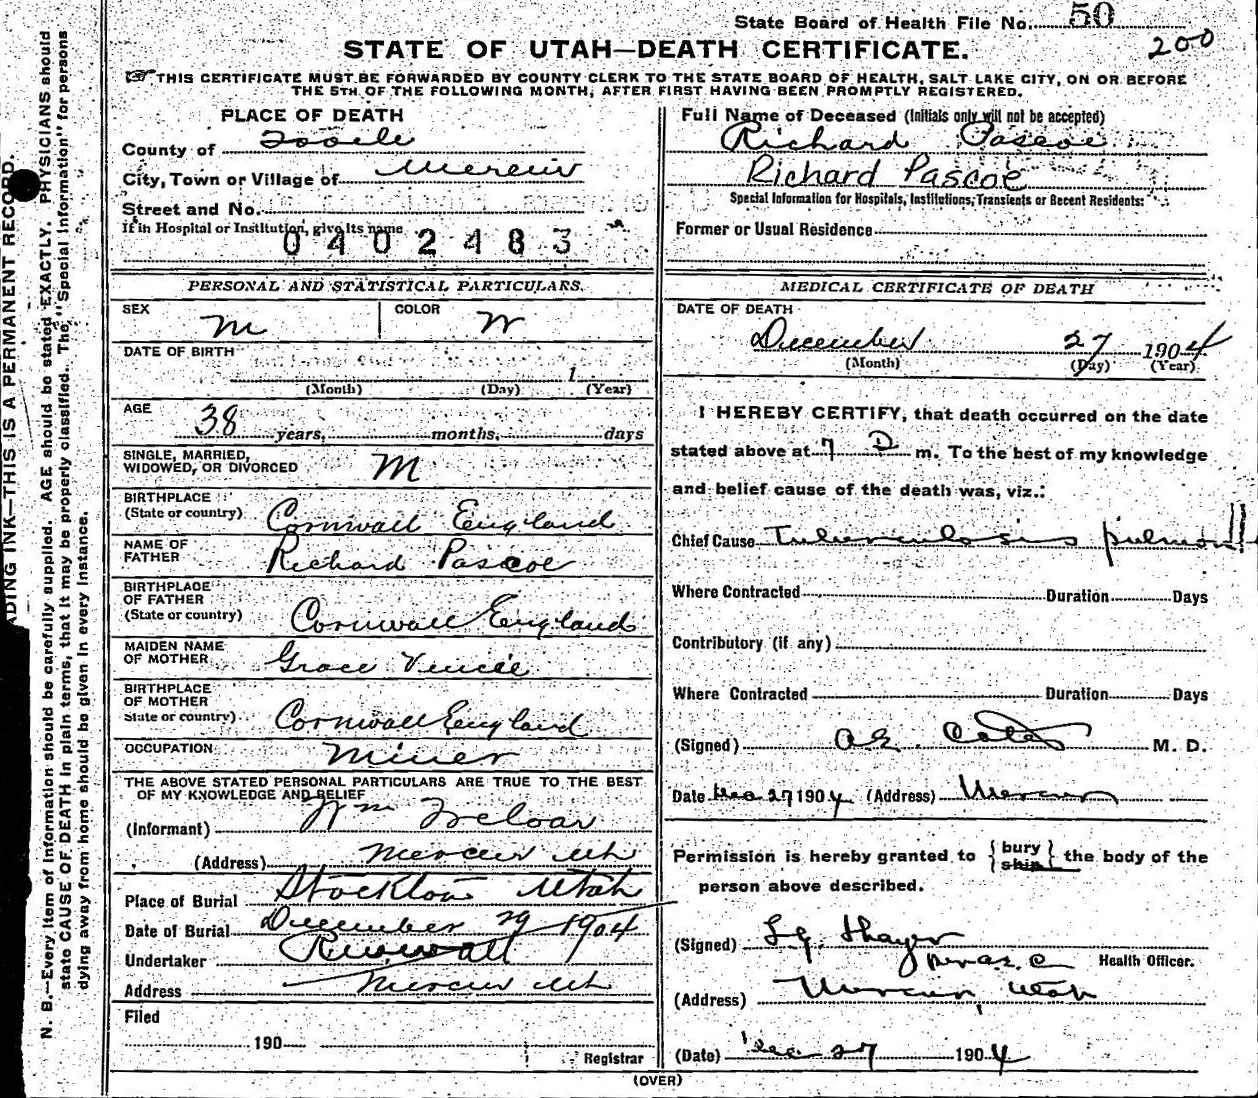 State Board of Health File No. 50
200
STATE OF UTAH—DEATH CERTIFICATE.
THIS CERTIFICATE MUST BE FORWARDED BY COUNTY CLERK TO THE STATE BOARD OF HEALTH, SALT LAKE CITY, ON OR BEFORE
THE 5TH OF THE FOLLOWING MONTH, AFTER FIRST HAVING BEEN PROMPTLY REGISTERED.
PLACE OF DEATH
County of Tooele
City, Town or Village of Mercur
Street and No.
If in Hospital or Institution, give its name
0402483
Full Name of Deceased (Initials only will not be accepted)
Richard Pascoe
Richard Pascoe
Special Information for Hospitals, Institutions, Transients or Recent Residents:
Former or Usual Residence
PERSONAL AND STATISTICAL PARTICULARS.
SEX M COLOR W
DATE OF BIRTH
1
(Month) (Day) (Year)
AGE
38 years, months, days
SINGLE, MARRIED,
WIDOWED, OR DIVORCED M
BIRTHPLACE
(State or country) Cornwall England
NAME OF
FATHER Richard Pascoe
BIRTHPLACE
OF FATHER
(State or country) Cornwall England
MAIDEN NAME
OF MOTHER Grace
BIRTHPLACE
OF MOTHER
State or country) Cornwall England
OCCUPATION Miner
THE ABOVE STATED PERSONAL PARTICULARS ARE TRUE TO THE BEST
OF MY KNOWLEDGE AND BELIEF
(Informant) Wm Treloar
(Address) Mercur Uth
Place of Burial Stockton Utah
Date of Burial December 29 1904
Undertaker
Address Mercur Uth
Filed
190
Registrar
MEDICAL CERTIFICATE OF DEATH
DATE OF DEATH
December 27 1904
(Month) (Day) (Year)
I HEREBY CERTIFY, that death occurred on the date
stated above at 7 P m. To the best of my knowledge
and belief cause of the death was, viz.:
Chief Cause Tuberculosis
Where Contracted Duration Days
Contributory (if any)
Where Contracted Duration Days
(Signed) M. D.
Date Dec 27 1904 (Address) Mercur
Permission is hereby granted to { bury
ship } the body of the
person above described.
(Signed) L. G. Thayer
Health Officer.
(Address) Mercur, Utah
(Date) Dec 27 1904
(OVER)
ADING INK—THIS IS A PERMANENT RECORD.
N. B.—Every item of information should be carefully supplied. AGE should be stated EXACTLY. PHYSICIANS should
state CAUSE OF DEATH in plain terms, that it may be properly classified. The "Special Information" for persons
dying away from home should be given in every instance.